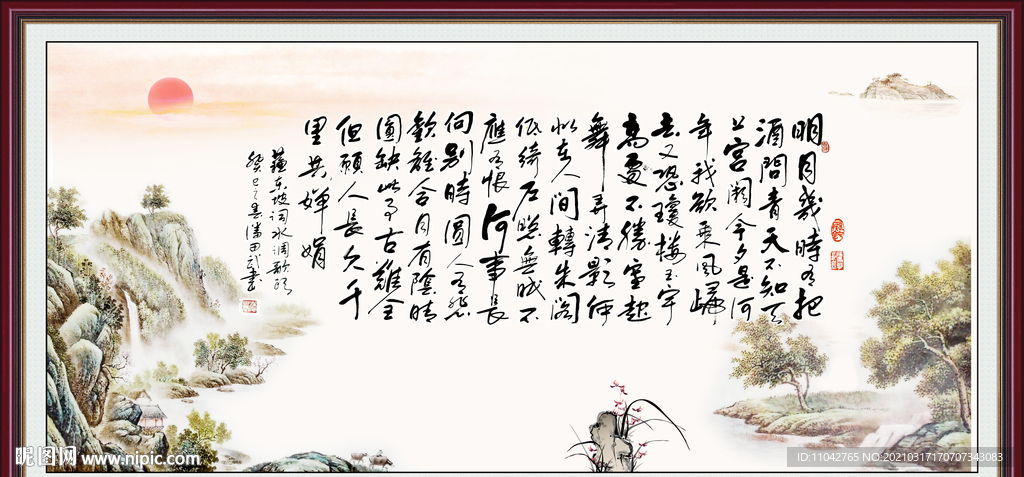 明月幾時有把
酒問青天不知天
上宮闕今夕是何
年我欲乘風歸
去又恐瓊樓玉宇
高處不勝寒起
舞弄清影何
似在人間轉朱閣
低綺戶照無眠不
應有恨何事長
向別時圓人有悲
歡離合月有陰晴
圓缺此事古難全
但願人長久千
里共嬋娟
蘇東坡詞水调歌頭
癸巳之春潘田武書
昵图网 www.nipic.com
ID:11042765 NO:20210317170707343083